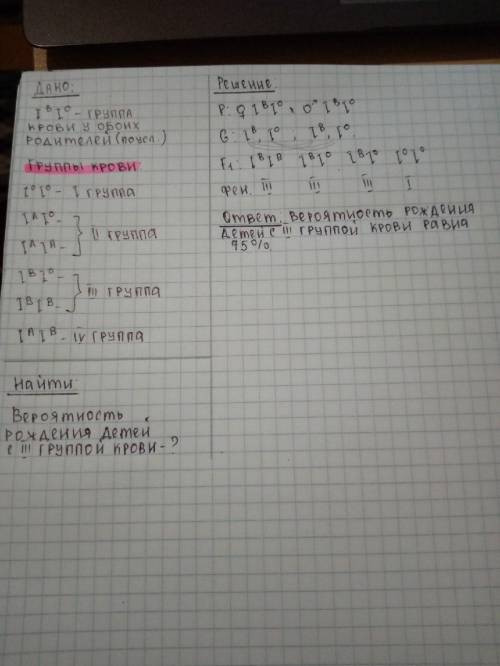 Дано:
I^B I^O - группа
крови у обоих
родителей (по усл.)
Группы крови
I^O I^O - I группа
I^A I^O -
I^A I^A -
} II группа
I^B I^O -
I^B I^B -
} III группа
I^A I^B - IV группа
Найти:
Вероятность
рождения детей
с III группой крови - ?
Решение
P: ♀ I^B I^O × ♂ I^B I^O
G: I^B, I^O, I^B, I^O
F1: I^B I^B I^B I^O I^B I^O I^O I^O
Фен. III III III I
Ответ: вероятность рождения
детей с III группой крови равна
75%